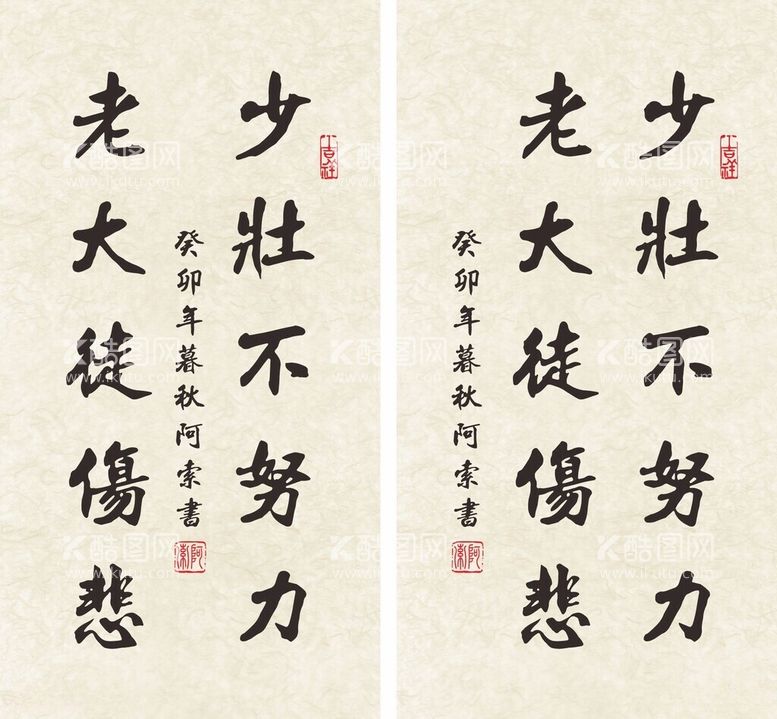 少壯不努力
老大徒傷悲
癸卯年暮秋阿索書
阿索
吉祥
少壯不努力
老大徒傷悲
癸卯年暮秋阿索書
阿索
吉祥
酷图网
www.ikutu.com